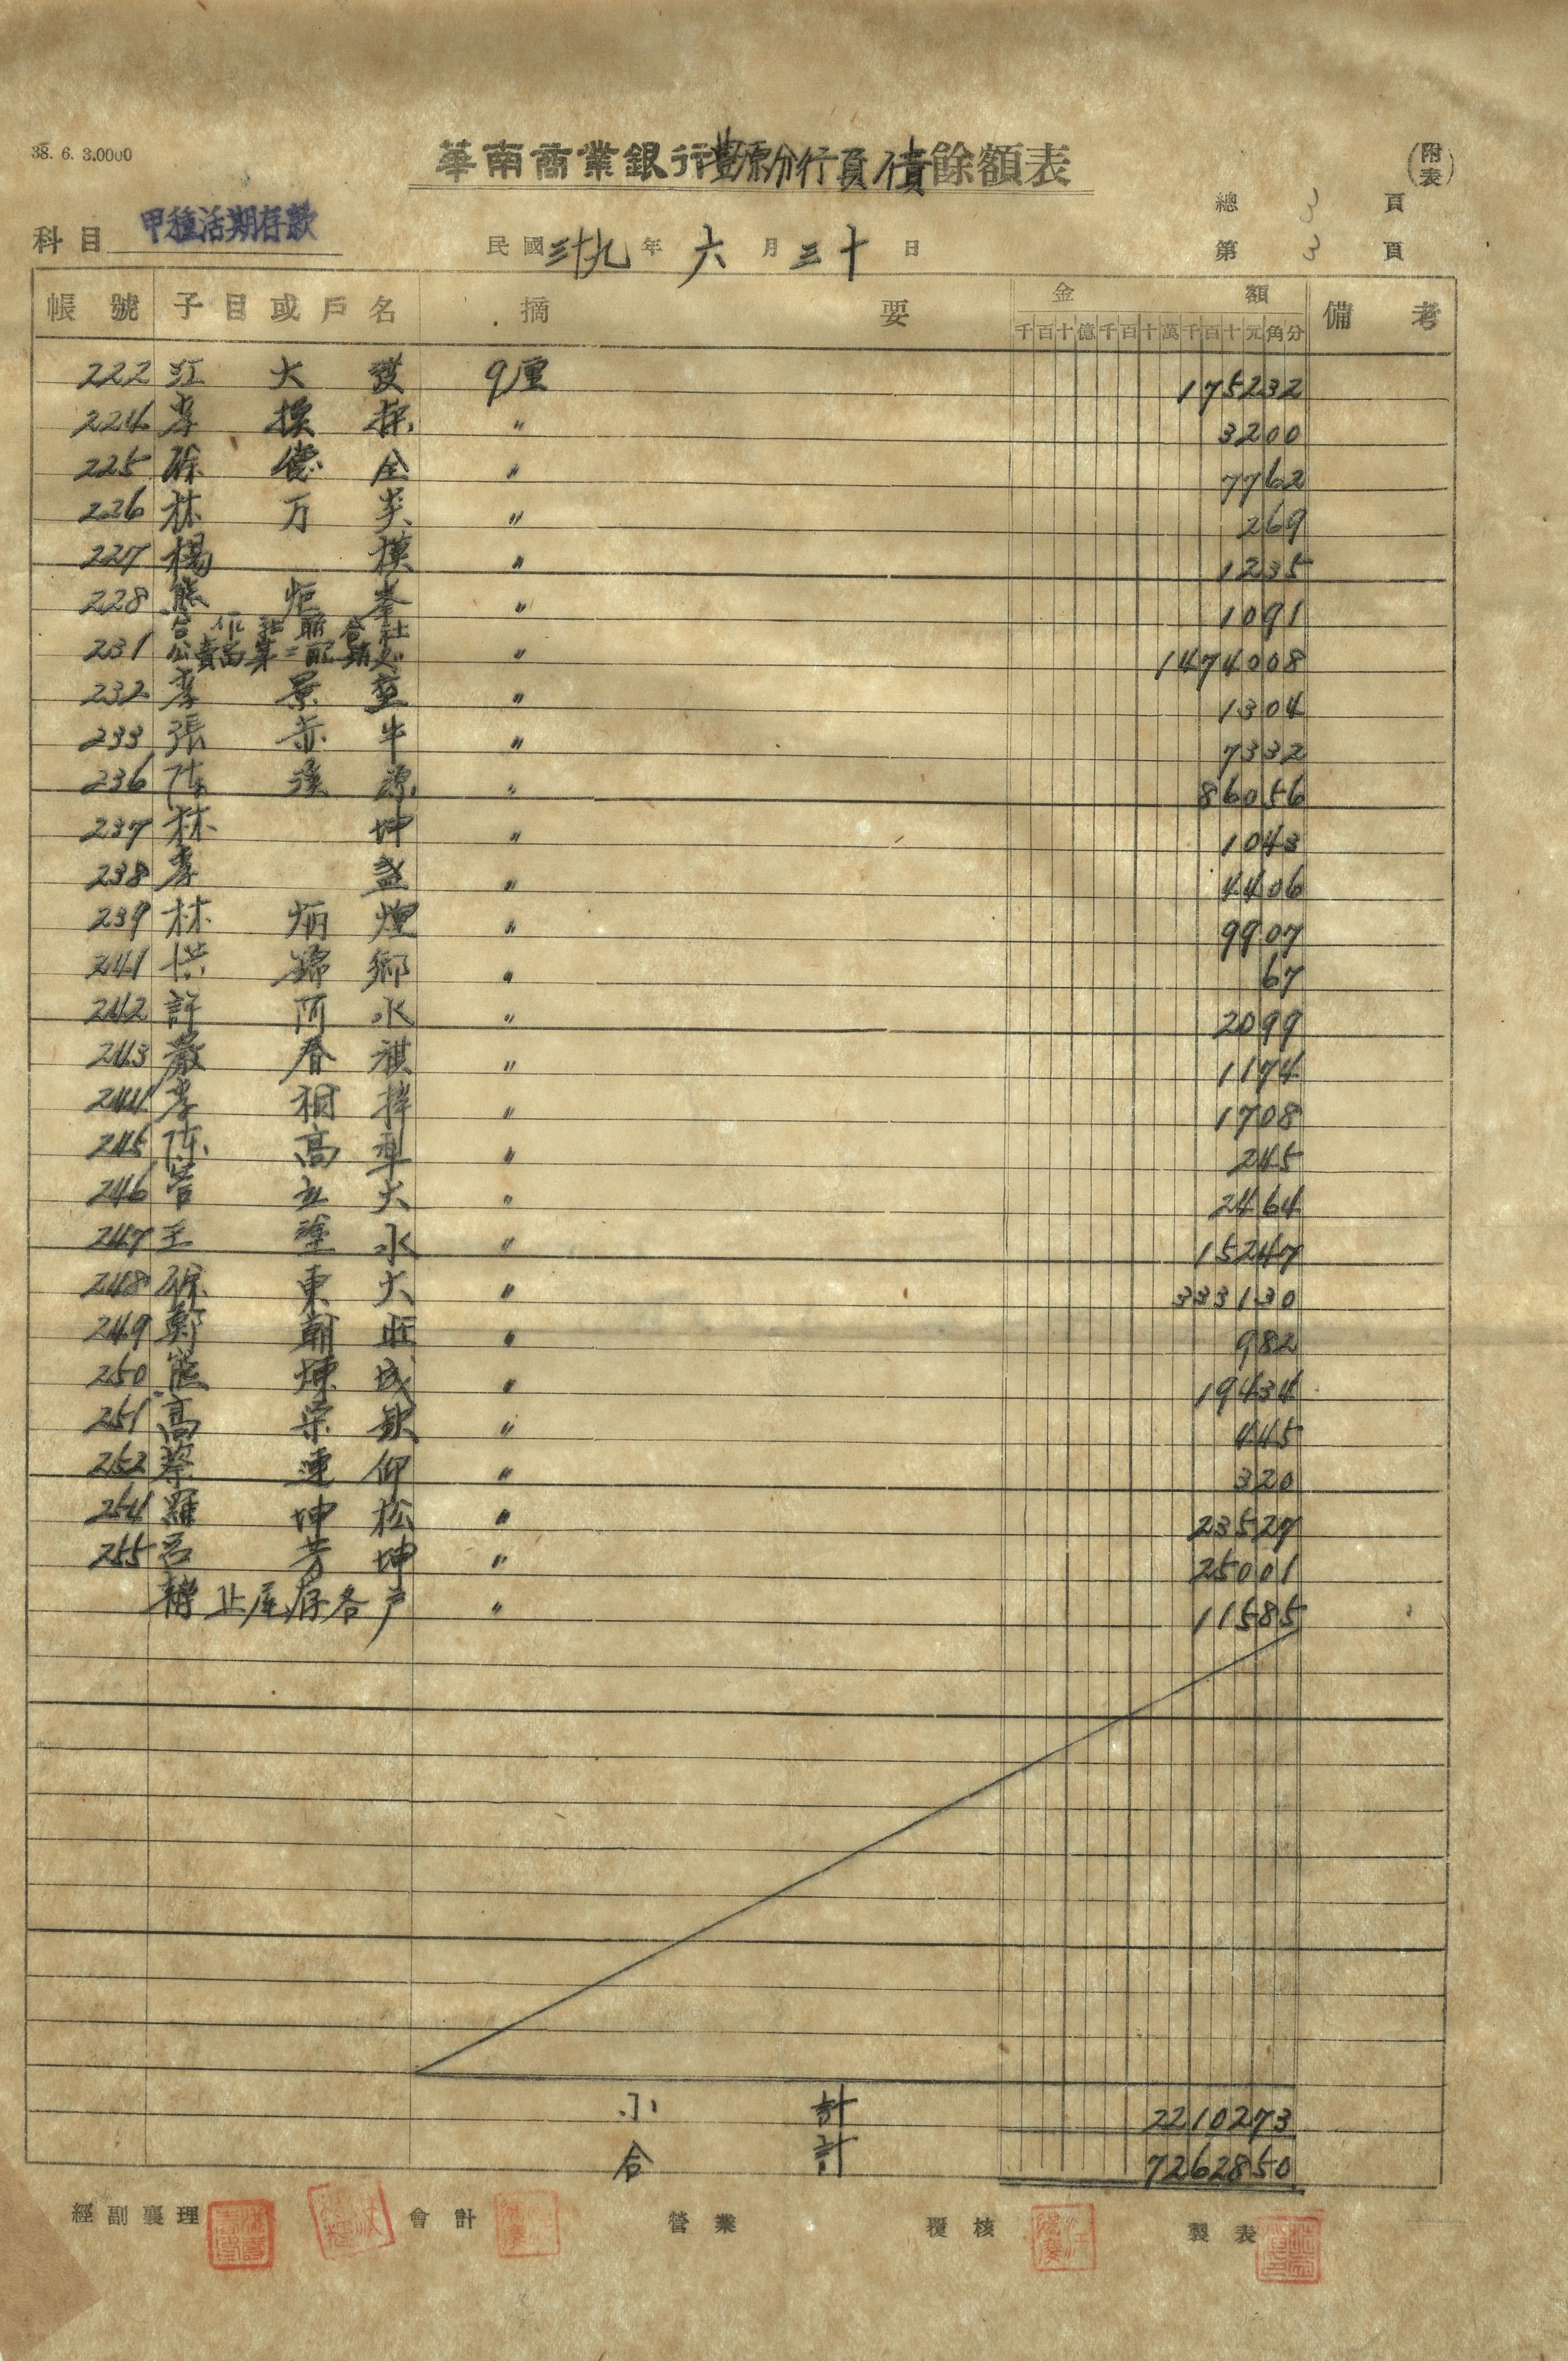 38. 6. 3.0000
華南商業銀行豐原分行負債餘額表
(附表)
總 3 頁
科目 甲種活期存款
民國 三十九 年 六 月 三十 日
第 3 頁
帳號 子目或戶名 摘要 金額 備考
千百十億千百十萬千百十元角分
222 江大 9厘 175232
224 李 〃 3200
225 徐德全 〃 7762
226 林万 〃 269
227 楊模 〃 1235
228 熊炬峯 〃 1091
合作社聯合社
231 〃 1474008
232 李景 〃 1304
233 張赤牛 〃 7332
236 陈漢源 〃 86056
237 林坤 〃 1043
238 李 〃 4406
239 林炳煌 〃 9907
241 洪錦鄉 〃 67
242 許阿水 〃 2099
243 嚴春祺 〃 1174
244 李 〃 1708
245 陈高 〃 245
246 大 〃 2464
247 王塗水 〃 15247
248 徐東大 〃 333130
249 鄭朝旺 〃 982
250 熊煉成 〃 19434
251 高宗欽 〃 445
252 蔡連仰 〃 320
254 羅坤松 〃 23527
255 呂芳坤 〃 25001
轉止存各戶 〃 11585
小計 2210273
合計 7262850
經副襄理 會計 營業 覆核 製表